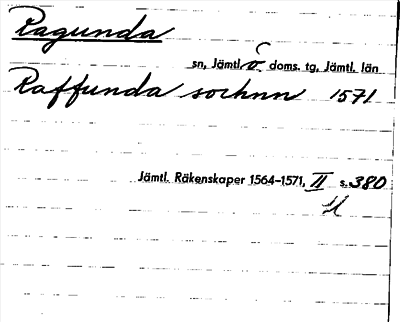 Ragunda
sn, Jämtl. ö. doms. tg, Jämtl. län
Raffunda sochnn 1571
Jämtl. Räkenskaper 1564-1571, II s. 380